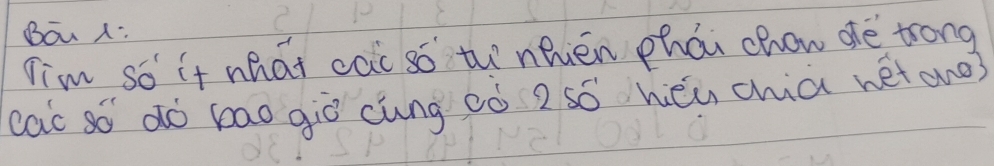 Bài 1:
Tìm số ít nhất các số tự nhiên phải chọn để trong
các số đó bao giờ cũng có 2 số hiệu chia hết cho 3